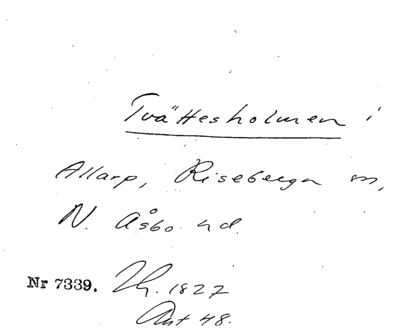 Tvättesholmen i
Allarp, Riseberga sn,
N. Åsbo hd.
Nr 7339. 1827
48.